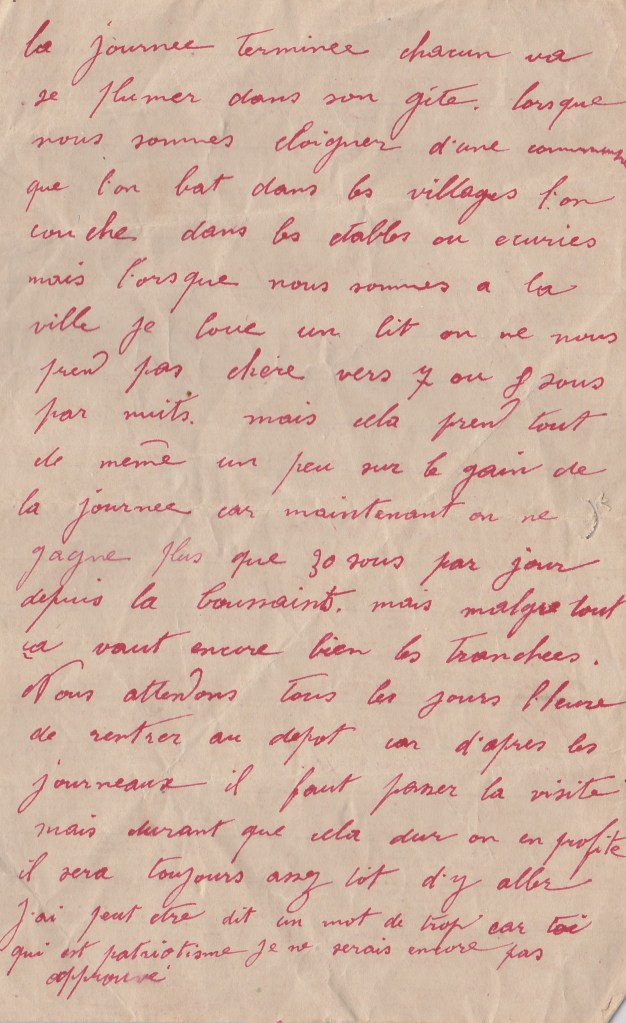 la journee terminee chacun va
se plumer dans son gite. lorsque
nous sommes eloigner d'une commune
que l'on bat dans les villages l'on
couche dans les etables ou ecuries
mais l'orsque nous sommes a la
ville je loue un lit on ne nous
prend pas chere vers 7 ou 8 sous
par nuits. mais cela prend tout
de meme un peu sur le gain de
la journee car maintenant on ne
gagne plus que 30 sous par jour
depuis la Toussaint. mais malgre tout
ça vaut encore bien les tranchees.
Nous attendons tous les jours l'heure
de rentrer au depot car d'apres les
journeaux il faut passer la visite
mais durant que cela dur on en profite
il sera toujours assez tot d'y aller
j'ai peut etre dit un mot de trop car toi
qui est patriotisme je ne serais encore pas
approuvé